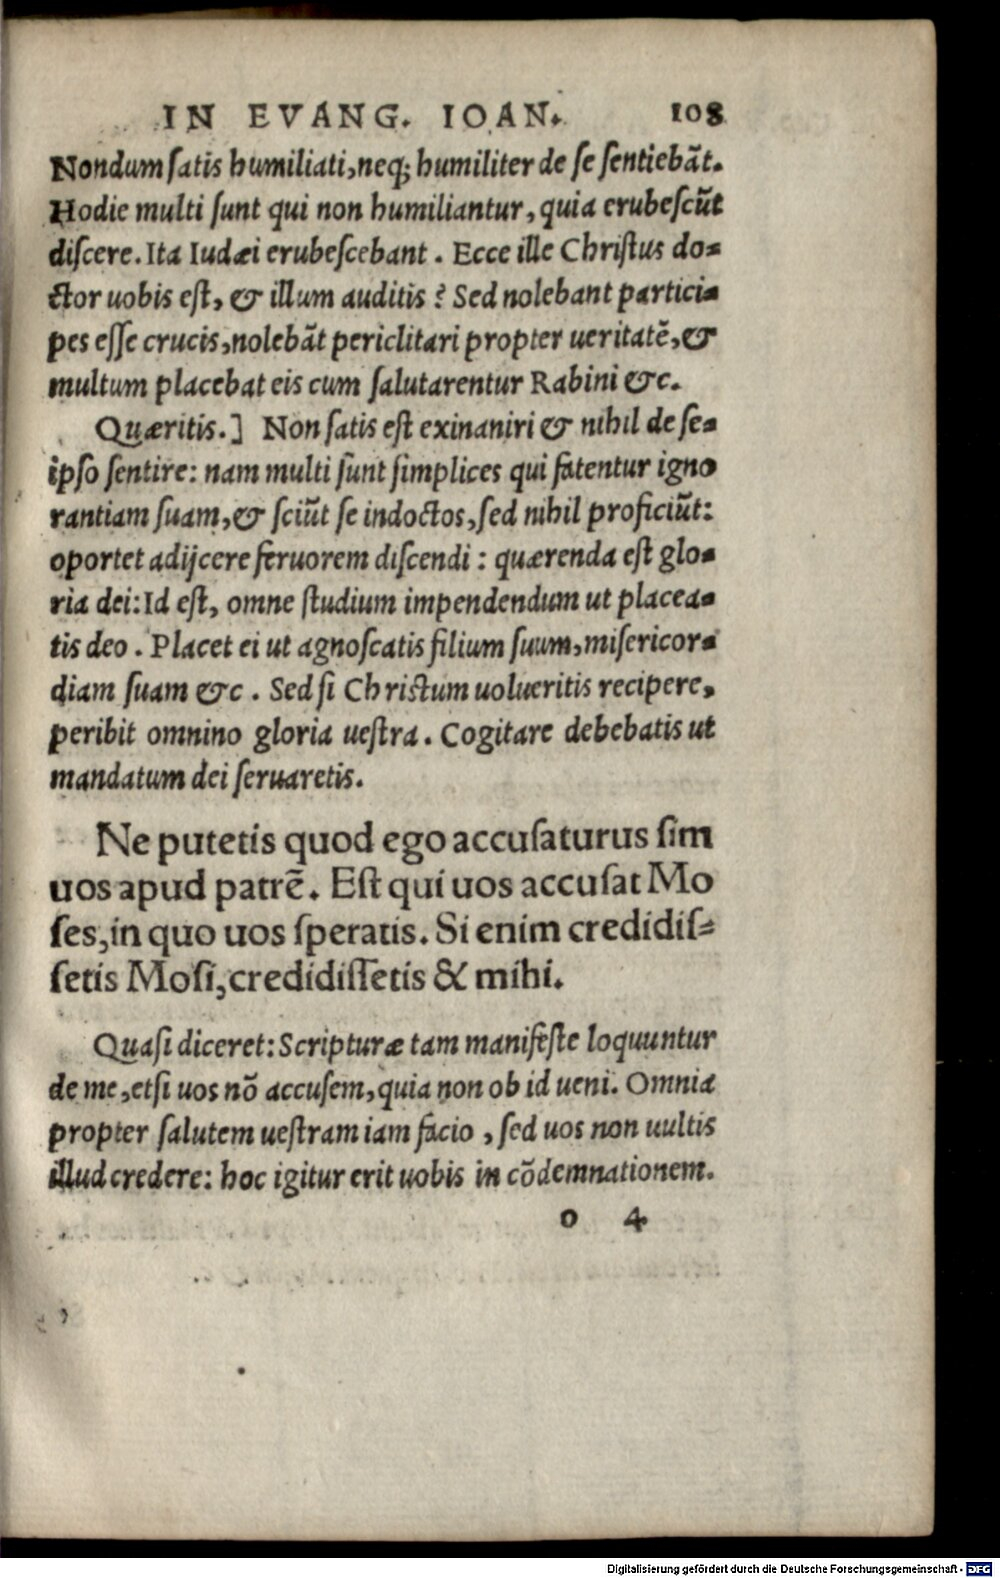 IN EVANG. IOAN. 108
Nondum ſatis humiliati, neq; humiliter de ſe ſentiebāt.
Hodie multi ſunt qui non humiliantur, quia erubeſcūt
diſcere. Ita Iudæi erubeſcebant. Ecce ille Chriſtus do-
ctor uobis eſt, & illum auditis? Sed nolebant partici-
pes eſſe crucis, nolebāt periclitari propter ueritatē, &
multum placebat eis cum ſalutarentur Rabini &c.
Quæritis.] Non ſatis eſt exinaniri & nihil de ſe-
ipſo ſentire: nam multi ſunt ſimplices qui fatentur igno
rantiam ſuam, & ſciūt ſe indoctos, ſed nihil proficiūt:
oportet adijcere feruorem diſcendi: quærenda eſt glo-
ria dei: Id eſt, omne ſtudium impendendum ut placea-
tis deo. Placet ei ut agnoſcatis filium ſuum, miſericor-
diam ſuam &c. Sed ſi Chriſtum uolueritis recipere,
peribit omnino gloria ueſtra. Cogitare debebatis ut
mandatum dei ſeruaretis.
Ne putetis quod ego accuſaturus ſim
uos apud patrē. Eſt qui uos accuſat Mo
ſes, in quo uos ſperatis. Si enim credidiſ-
ſetis Moſi, credidiſſetis & mihi.
Quaſi diceret: Scripturæ tam manifeſte loquuntur
de me, etſi uos nō accuſem, quia non ob id ueni. Omnia
propter ſalutem ueſtram iam facio, ſed uos non uultis
illud credere: hoc igitur erit uobis in cōdemnationem.
o 4
Digitalisierung gefördert durch die Deutsche Forschungsgemeinschaft - DFG